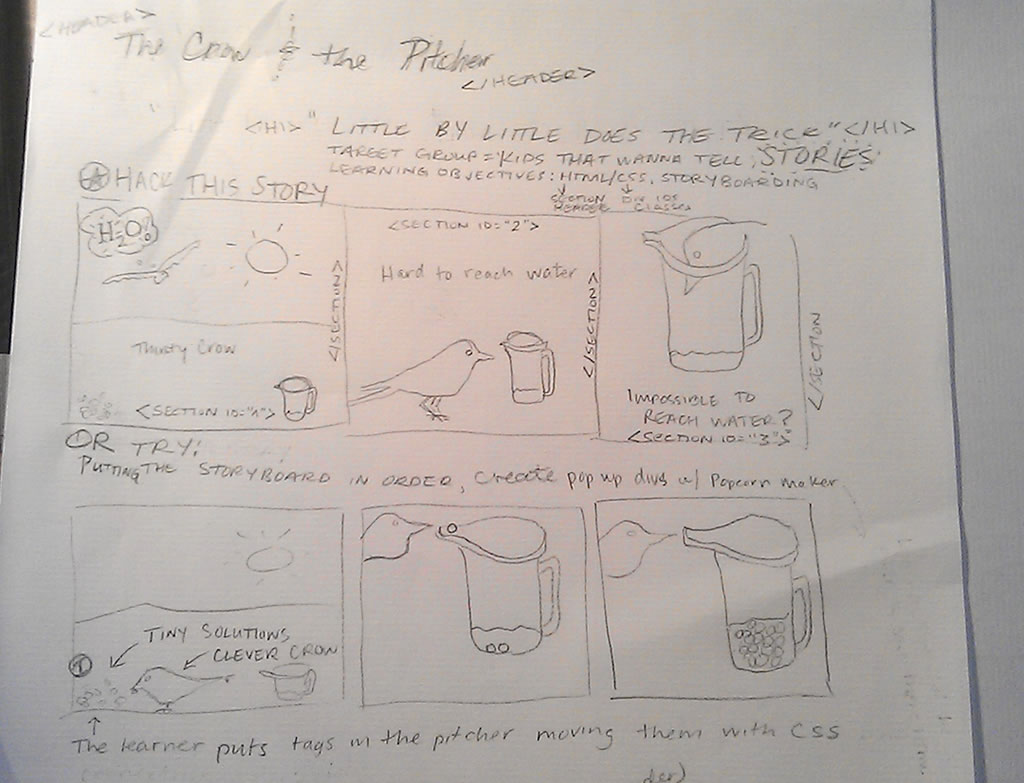 <HEADER>
The Crow & the Pitcher
</HEADER>
<H1>" LITTLE BY LITTLE DOES THE TRICK"</H1>
TARGET GROUP = KIDS THAT WANNA TELL STORIES
LEARNING OBJECTIVES: HTML/CSS, STORYBOARDING
HACK THIS STORY
SECTION DIV IDS
HEADER CLASSES
H2O!
</SECTION>
Thirsty Crow
<SECTION ID="1">
<SECTION ID="2">
Hard to reach water
</SECTION>
</SECTION
IMPOSSIBLE TO
REACH WATER?
<SECTION ID="3">
OR TRY:
PUTTING THE STORYBOARD IN ORDER, create pop up divs w/ Popcorn maker
TINY SOLUTIONS
CLEVER CROW
The learner puts tags in the pitcher moving them with CSS